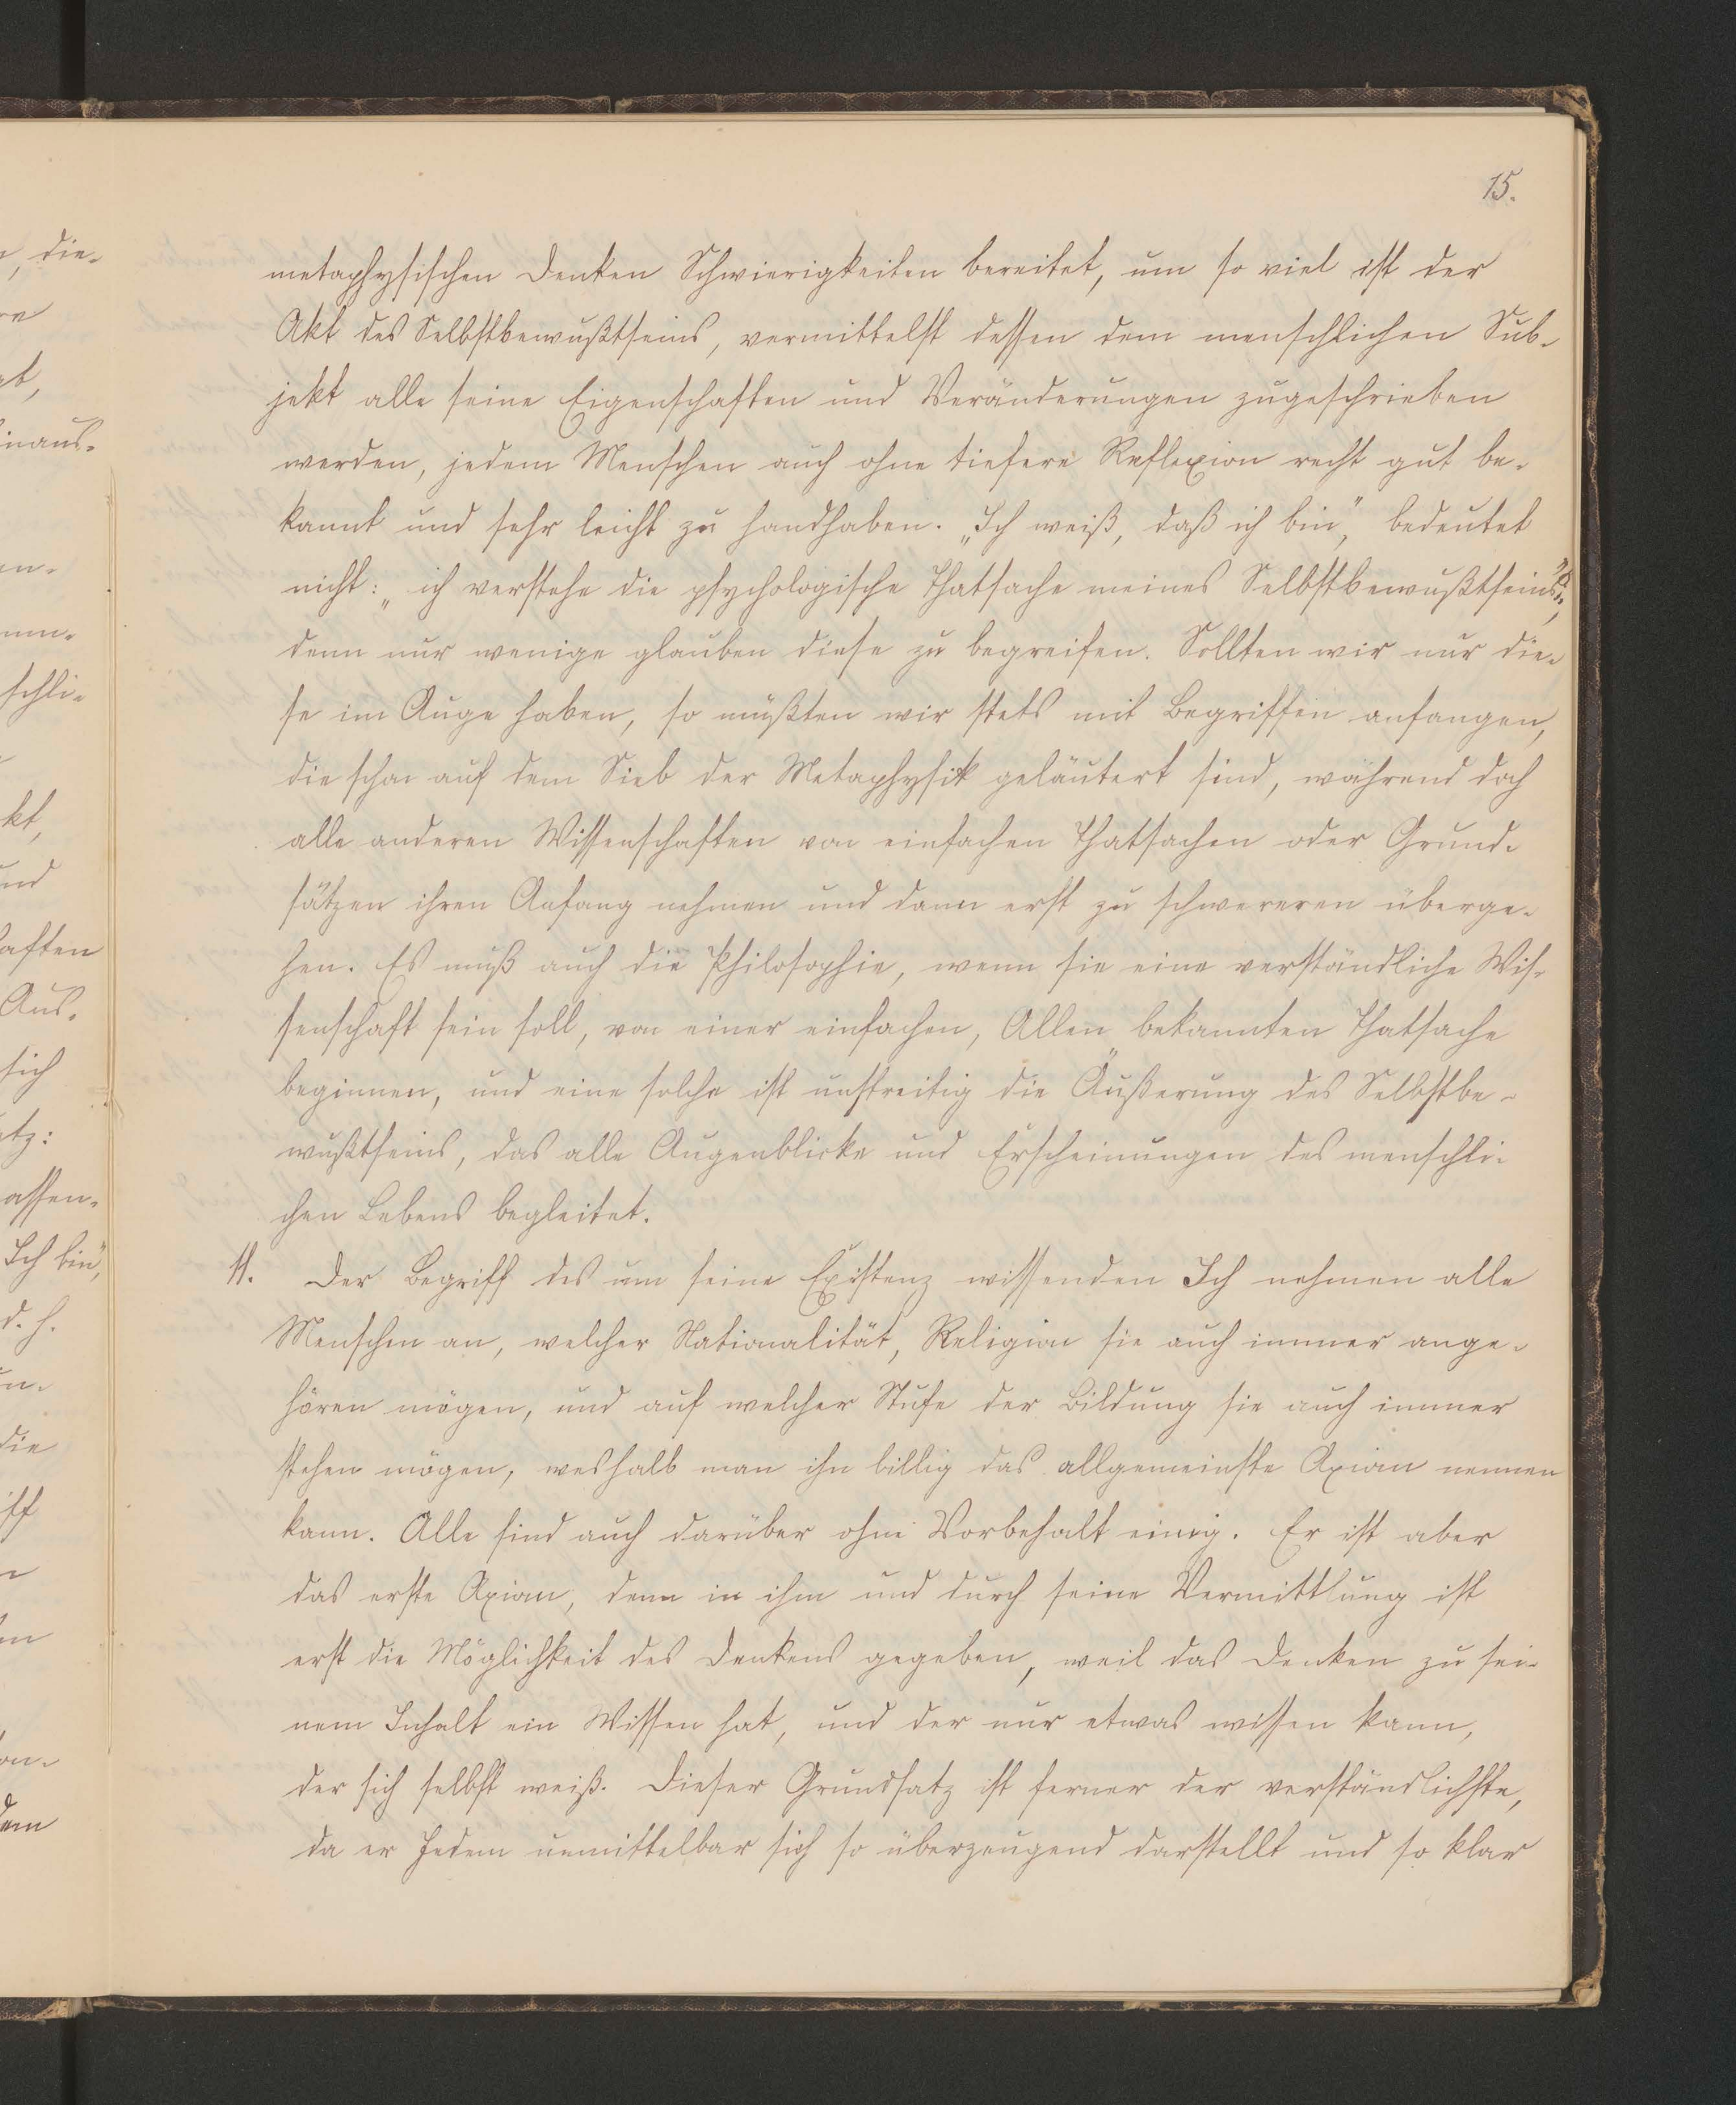 15.
metaphysischen Denken Schwierigkeiten bereitet, um so viel ist der
Akt des Selbstbewußtseins, vermittelst dessen dem menschlichen Sub-
jekt alle seine Eigenschaften und Veränderungen zugeschrieben
werden, jedem Menschen auch ohne tiefere Reflexion recht gut be-
kannt und sehr leicht zu handhaben. „Ich weiß, daß ich bin“, bedeutet
nicht: „ich verstehe die psychologische Thatsache meines Selbstbewußtseins“,
denn nur wenige glauben diese zu begreifen. Sollten wir nur die-
se im Auge haben, so müßten wir stets mit Begriffen anfangen,
die schon auf dem Sieb der Metaphysik geläutert sind, während doch
alle anderen Wissenschaften von einfachen Thatsachen oder Grund-
sätzen ihren Anfang nehmen und dann erst zu schwereren überge-
hen. Es muß auch die Philosophie, wenn sie eine verständliche Wis-
senschaft sein soll, von einer einfachen, Allen bekannten Thatsache
beginnen, und eine solche ist unstreitig die Äußerung des Selbstbe-
wußtseins, das alle Augenblicke und Erscheinungen des menschli-
chen Lebens begleitet.
11. Der Begriff des um seine Existenz wissenden Ich nehmen alle
Menschen an, welcher Nationalität, Religion sie auch immer ange-
hören mögen, und auf welcher Stufe der Bildung sie auch immer
stehen mögen, weshalb man ihn billig das allgemeinste Axiom nennen
kann. Alle sind auch darüber ohne Vorbehalt einig. Er ist aber
das erste Axiom, denn in ihm und durch seine Vermittlung ist
erst die Möglichkeit des Denkens gegeben, weil das Denken zu sei-
nem Inhalt ein Wissen hat, und der nur etwas wissen kann,
der sich selbst weiß. Dieser Grundsatz ist ferner der verständlichste,
da er Jedem unmittelbar sich so überzeugend darstellt und so klar